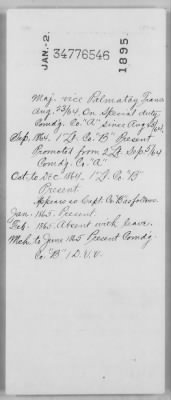 JAN.-2.
34776546
1895.
Maj. vice Palmatory Trans
Aug. 23/64. On Special duty
Comdg. Co. "A" since Aug 23/64.
Sept. 1864. 1" Lt. Co. "B" Present
Promoted from 2" Lt. Sep 5/64
Comdg. Co. "A"
Oct. to Dec 1864. 1" Lt. Co. "B"
Present
Appears as Capt. Co.
Jan. 1865. Present.
Feb. 1865. Absent with leave.
Mch. to June 1865 Present Comdg.
Co. "B" 1 D. V. V.